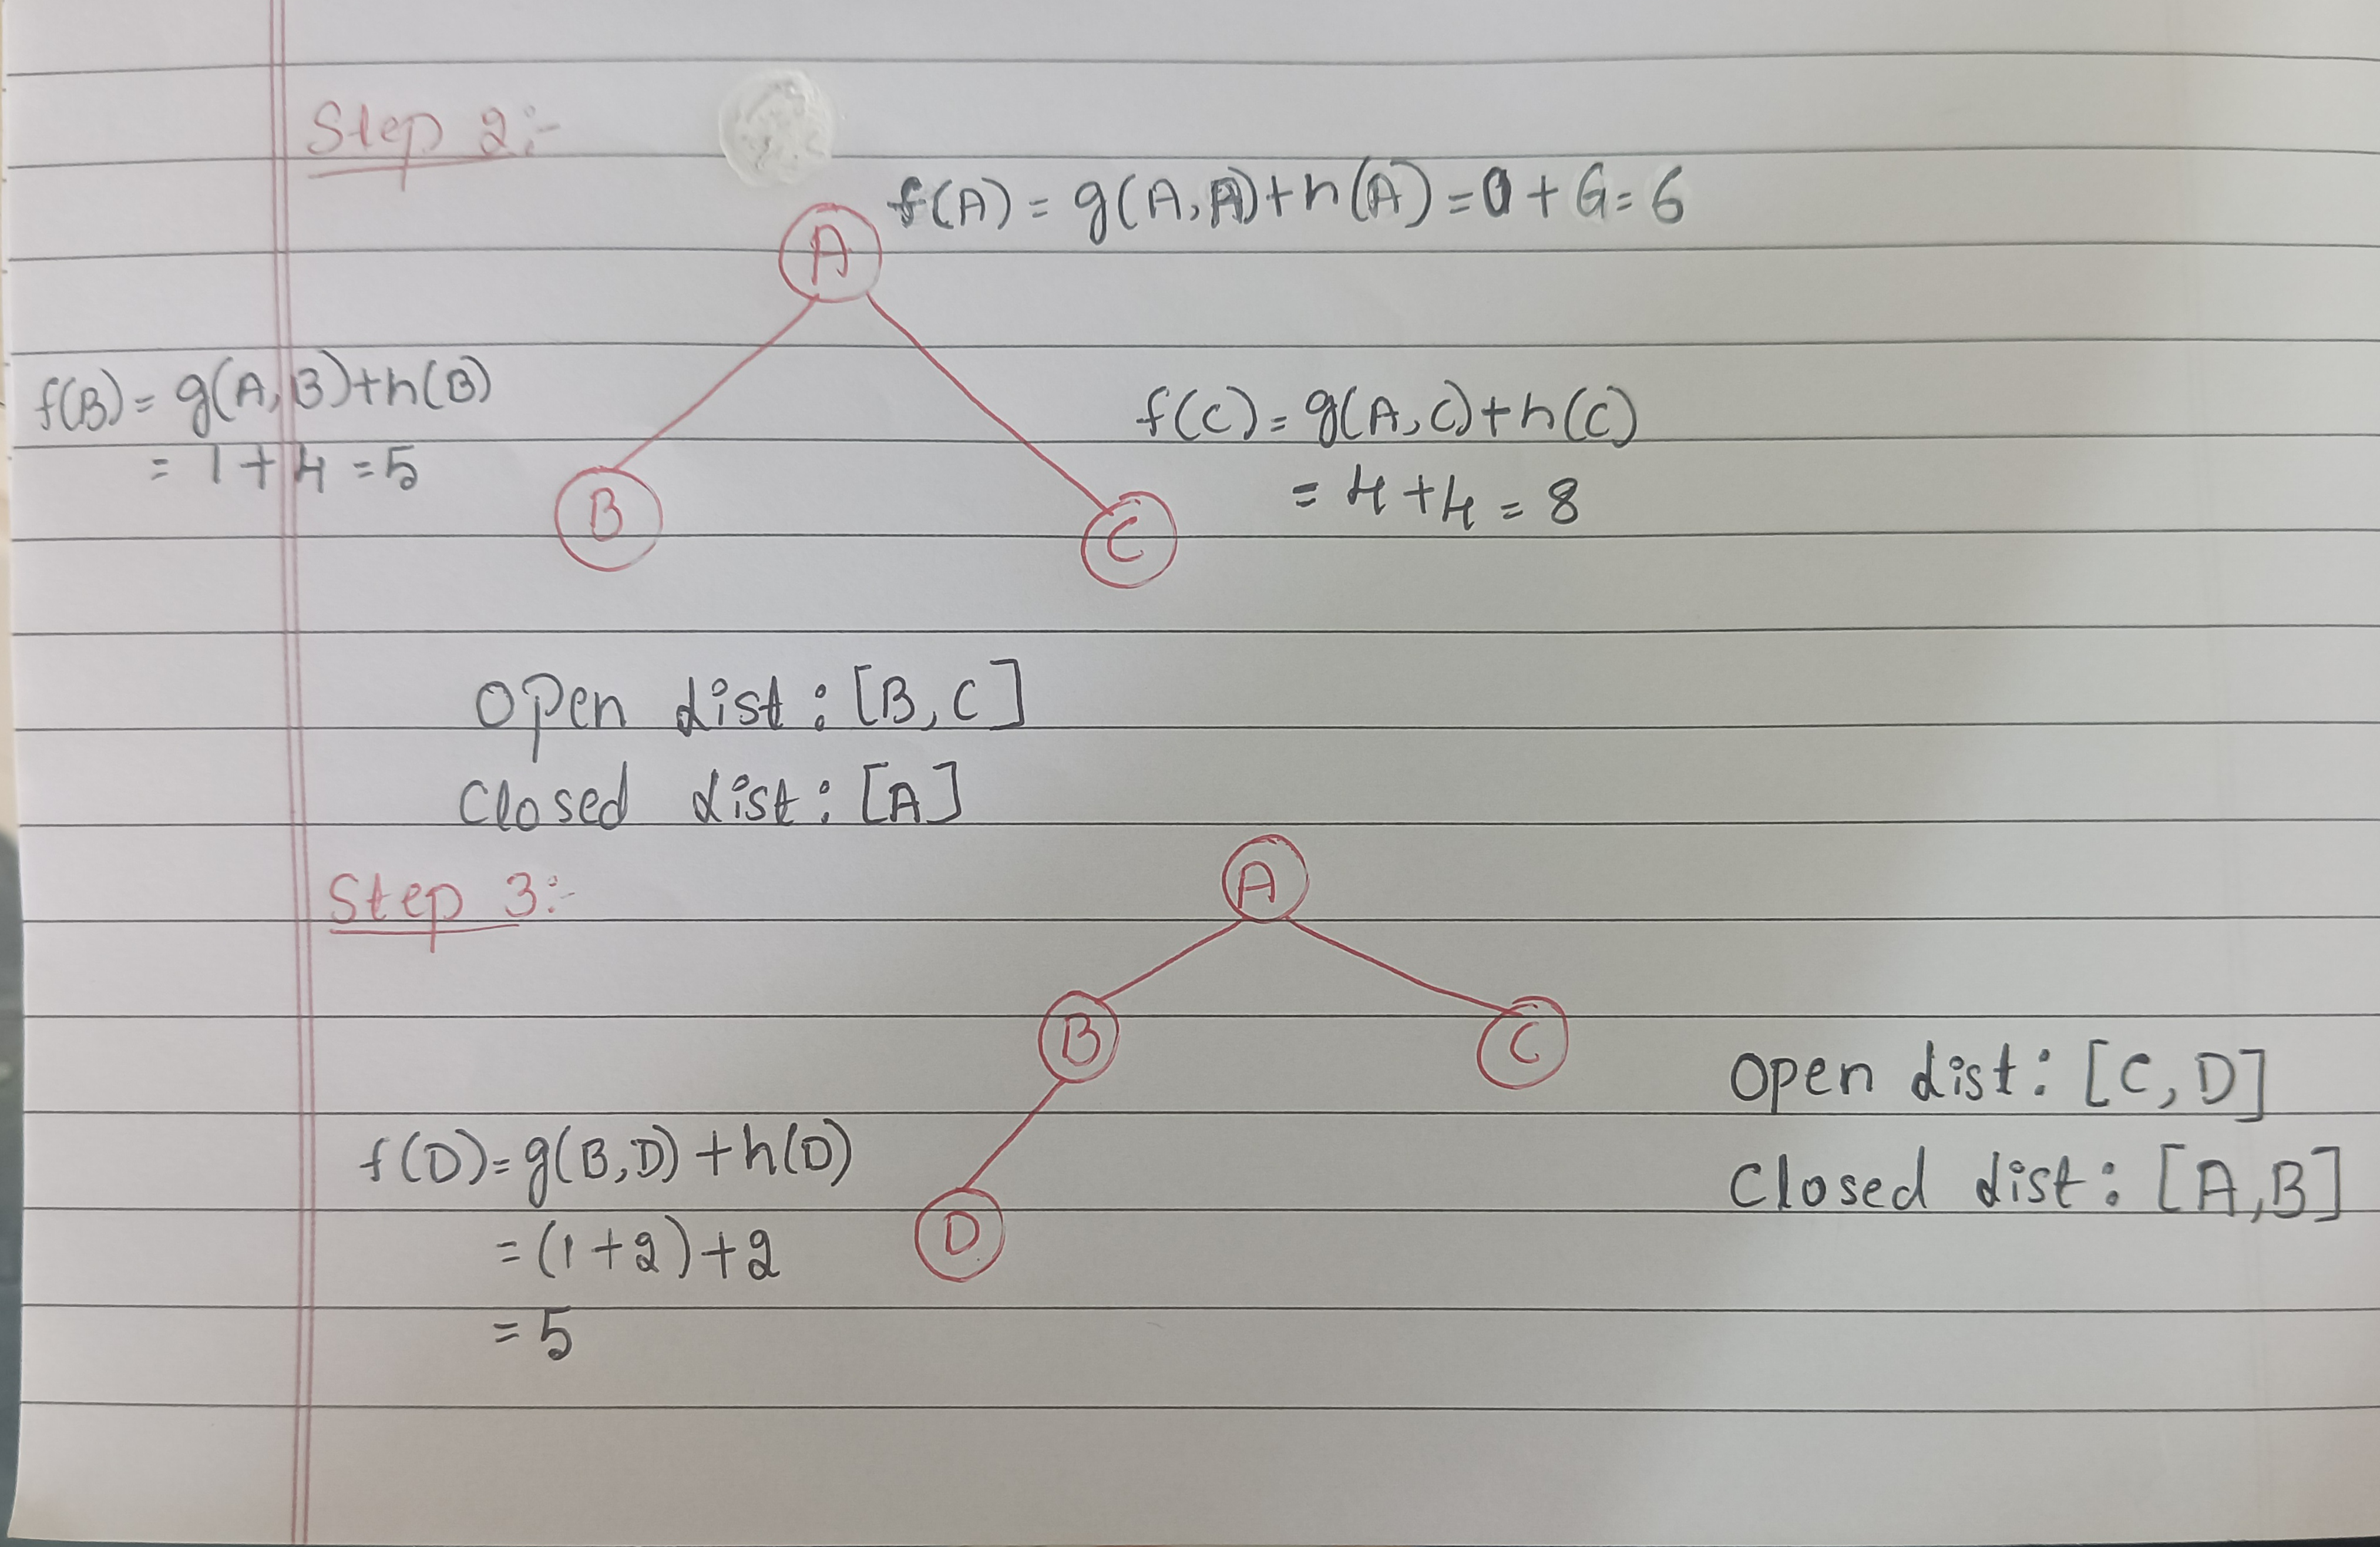 Step 2:-
f(A) = g(A,A)+h(A) = 0+6=6
A
f(B) = g(A,B)+h(B)
= 1+4 =5
f(C) = g(A,C)+h(C)
= 4+4 = 8
B
C
Open List: [B, C]
Closed List: [A]
Step 3:-
A
B
C
Open List: [C, D]
Closed List: [A,B]
f(D) = g(B,D) + h(D)
= (1+2)+2
= 5
D